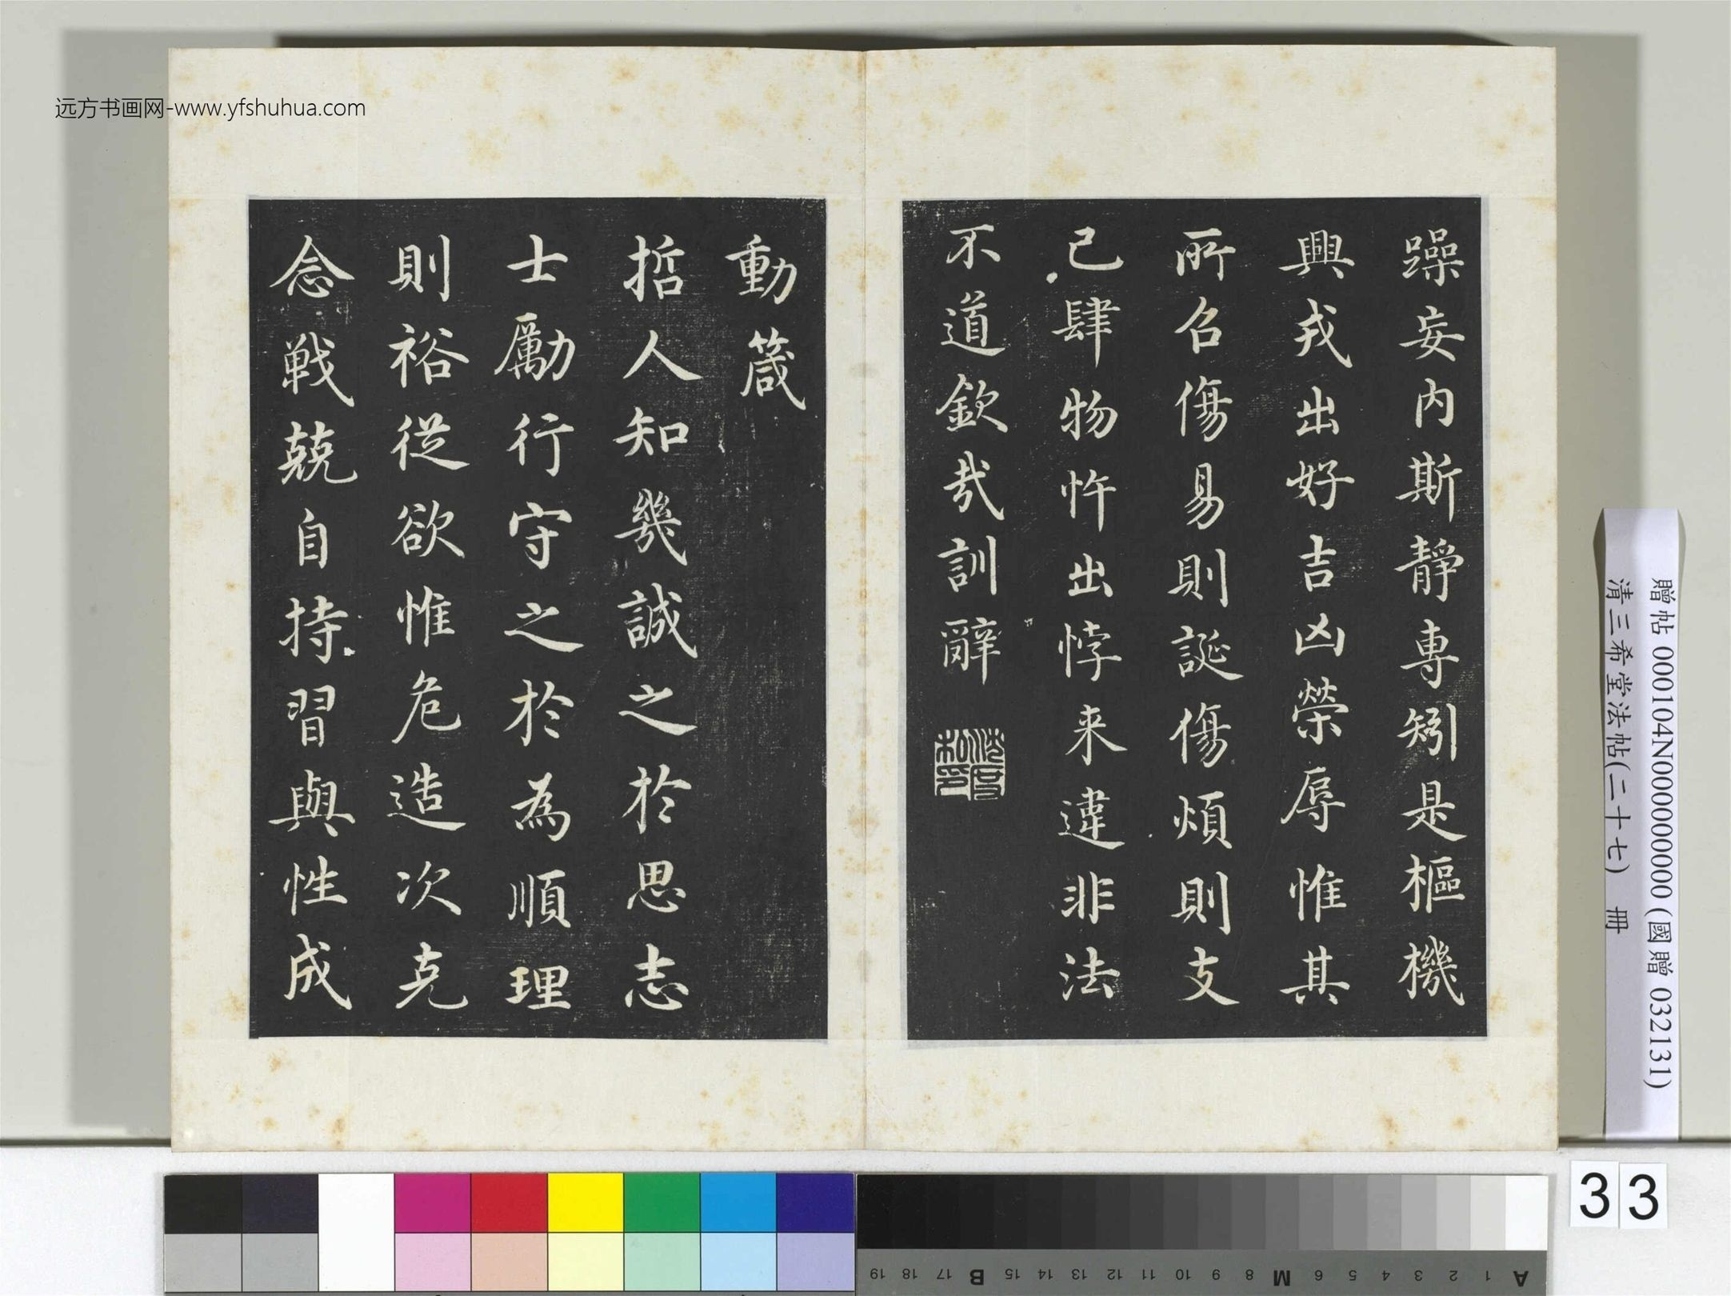 远方书画网-www.yfshuhua.com
躁妄内斯靜專矧是樞機
興戎出好吉凶榮辱惟其
所召傷易則誕傷煩則支
己肆物忤出悖来違非法
不道欽哉訓辭
動箴
哲人知幾誠之於思志
士勵行守之於為順理
則裕從欲惟危造次克
念戰兢自持習與性成
贈帖 000104N000000000 (國贈 032131)
清三希堂法帖(二十七) 冊
33
A 1 2 3 4 5 6 M 8 9 10 11 12 13 14 15 B 17 18 19